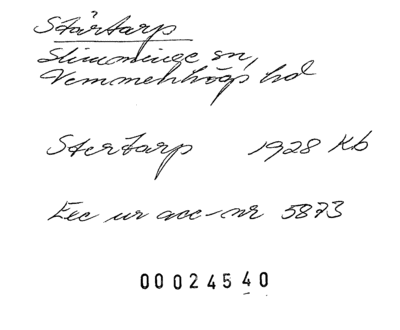 Stärtarp
Slimminge sn,
Vemmenhögs hd
Stertarp 1928 Kb
Exc ur acc-nr 5873
00024540